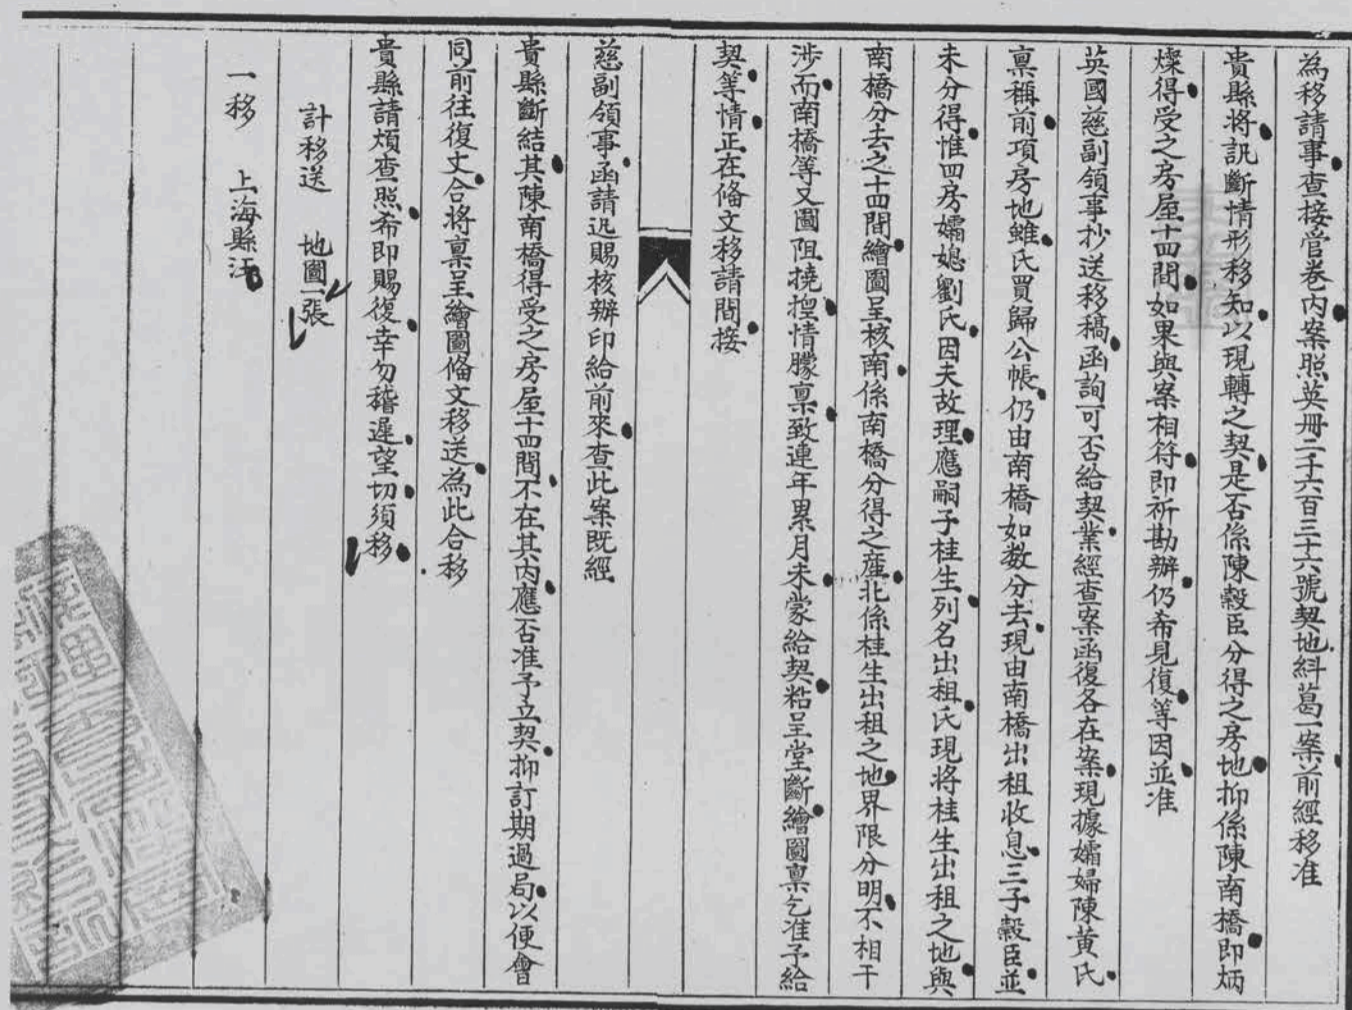 為移請事查接管卷內案照英冊二千六百三十六號契地糾葛一案前經移准
貴縣將訊斷情形移知以現轉之契是否係陳穀臣分得之房地抑係陳南橋即炳
燦得受之房屋十四間如果與案相符即祈勘辦仍希見復等因並准
英國慈副領事抄送移稿函詢可否給契業經查案函復各在案現據孀婦陳黃氏
稟稱前項房地雖氏買歸公帳仍由南橋如數分去現由南橋出租收息三子穀臣並
未分得惟四房孀媳劉氏因夫故理應嗣子桂生列名出租氏現將桂生出租之地與
南橋分去之十四間繪圖呈核南係南橋分得之產北係桂生出租之地界限分明不相干
涉而南橋等又圖阻撓揑情朦稟致連年累月未蒙給契粘呈堂斷繪圖稟乞准予給
契等情正在俻文移請間接
慈副領事函請迅賜核辦印給前來查此案既經
貴縣斷結其陳南橋得受之房屋十四間不在其內應否准予立契抑訂期過局以便會
同前往復丈合將稟呈繪圖俻文移送為此合移
貴縣請煩查照希即賜復幸勿稽遲望切須移
計移送 地圖一張
一移 上海縣汪